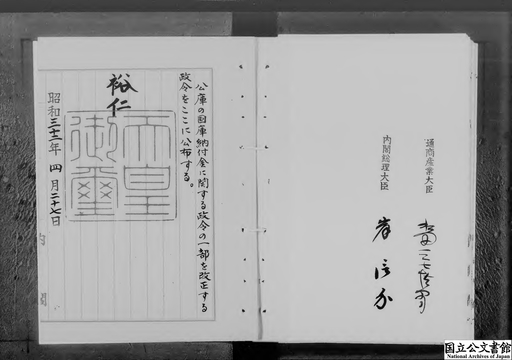 通商産業大臣
内閣総理大臣
岸信介
公庫の国庫納付金に関する政令の一部を改正する
政令をここに公布する。
裕仁
天皇
御璽
昭和三十二年 四月二十七日
内閣
国立公文書館
National Archives of Japan